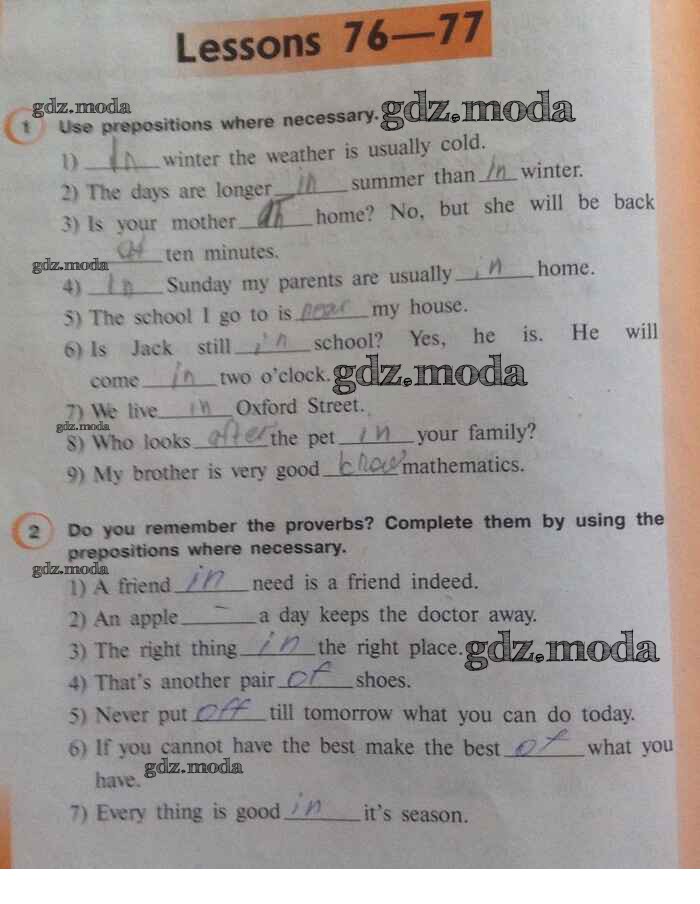 Lessons 76—77
gdz.moda
1 Use prepositions where necessary. gdz.moda
1) In winter the weather is usually cold.
2) The days are longer in summer than in winter.
3) Is your mother at home? No, but she will be back
at ten minutes.
gdz.moda
4) In Sunday my parents are usually in home.
5) The school I go to is near my house.
6) Is Jack still in school? Yes, he is. He will
come in two o'clock. gdz.moda
7) We live in Oxford Street.
gdz.moda
8) Who looks after the pet in your family?
9) My brother is very good know mathematics.
2 Do you remember the proverbs? Complete them by using the
prepositions where necessary.
gdz.moda
1) A friend in need is a friend indeed.
2) An apple – a day keeps the doctor away.
3) The right thing in the right place. gdz.moda
4) That's another pair of shoes.
5) Never put off till tomorrow what you can do today.
6) If you cannot have the best make the best of what you
have. gdz.moda
7) Every thing is good in it's season.